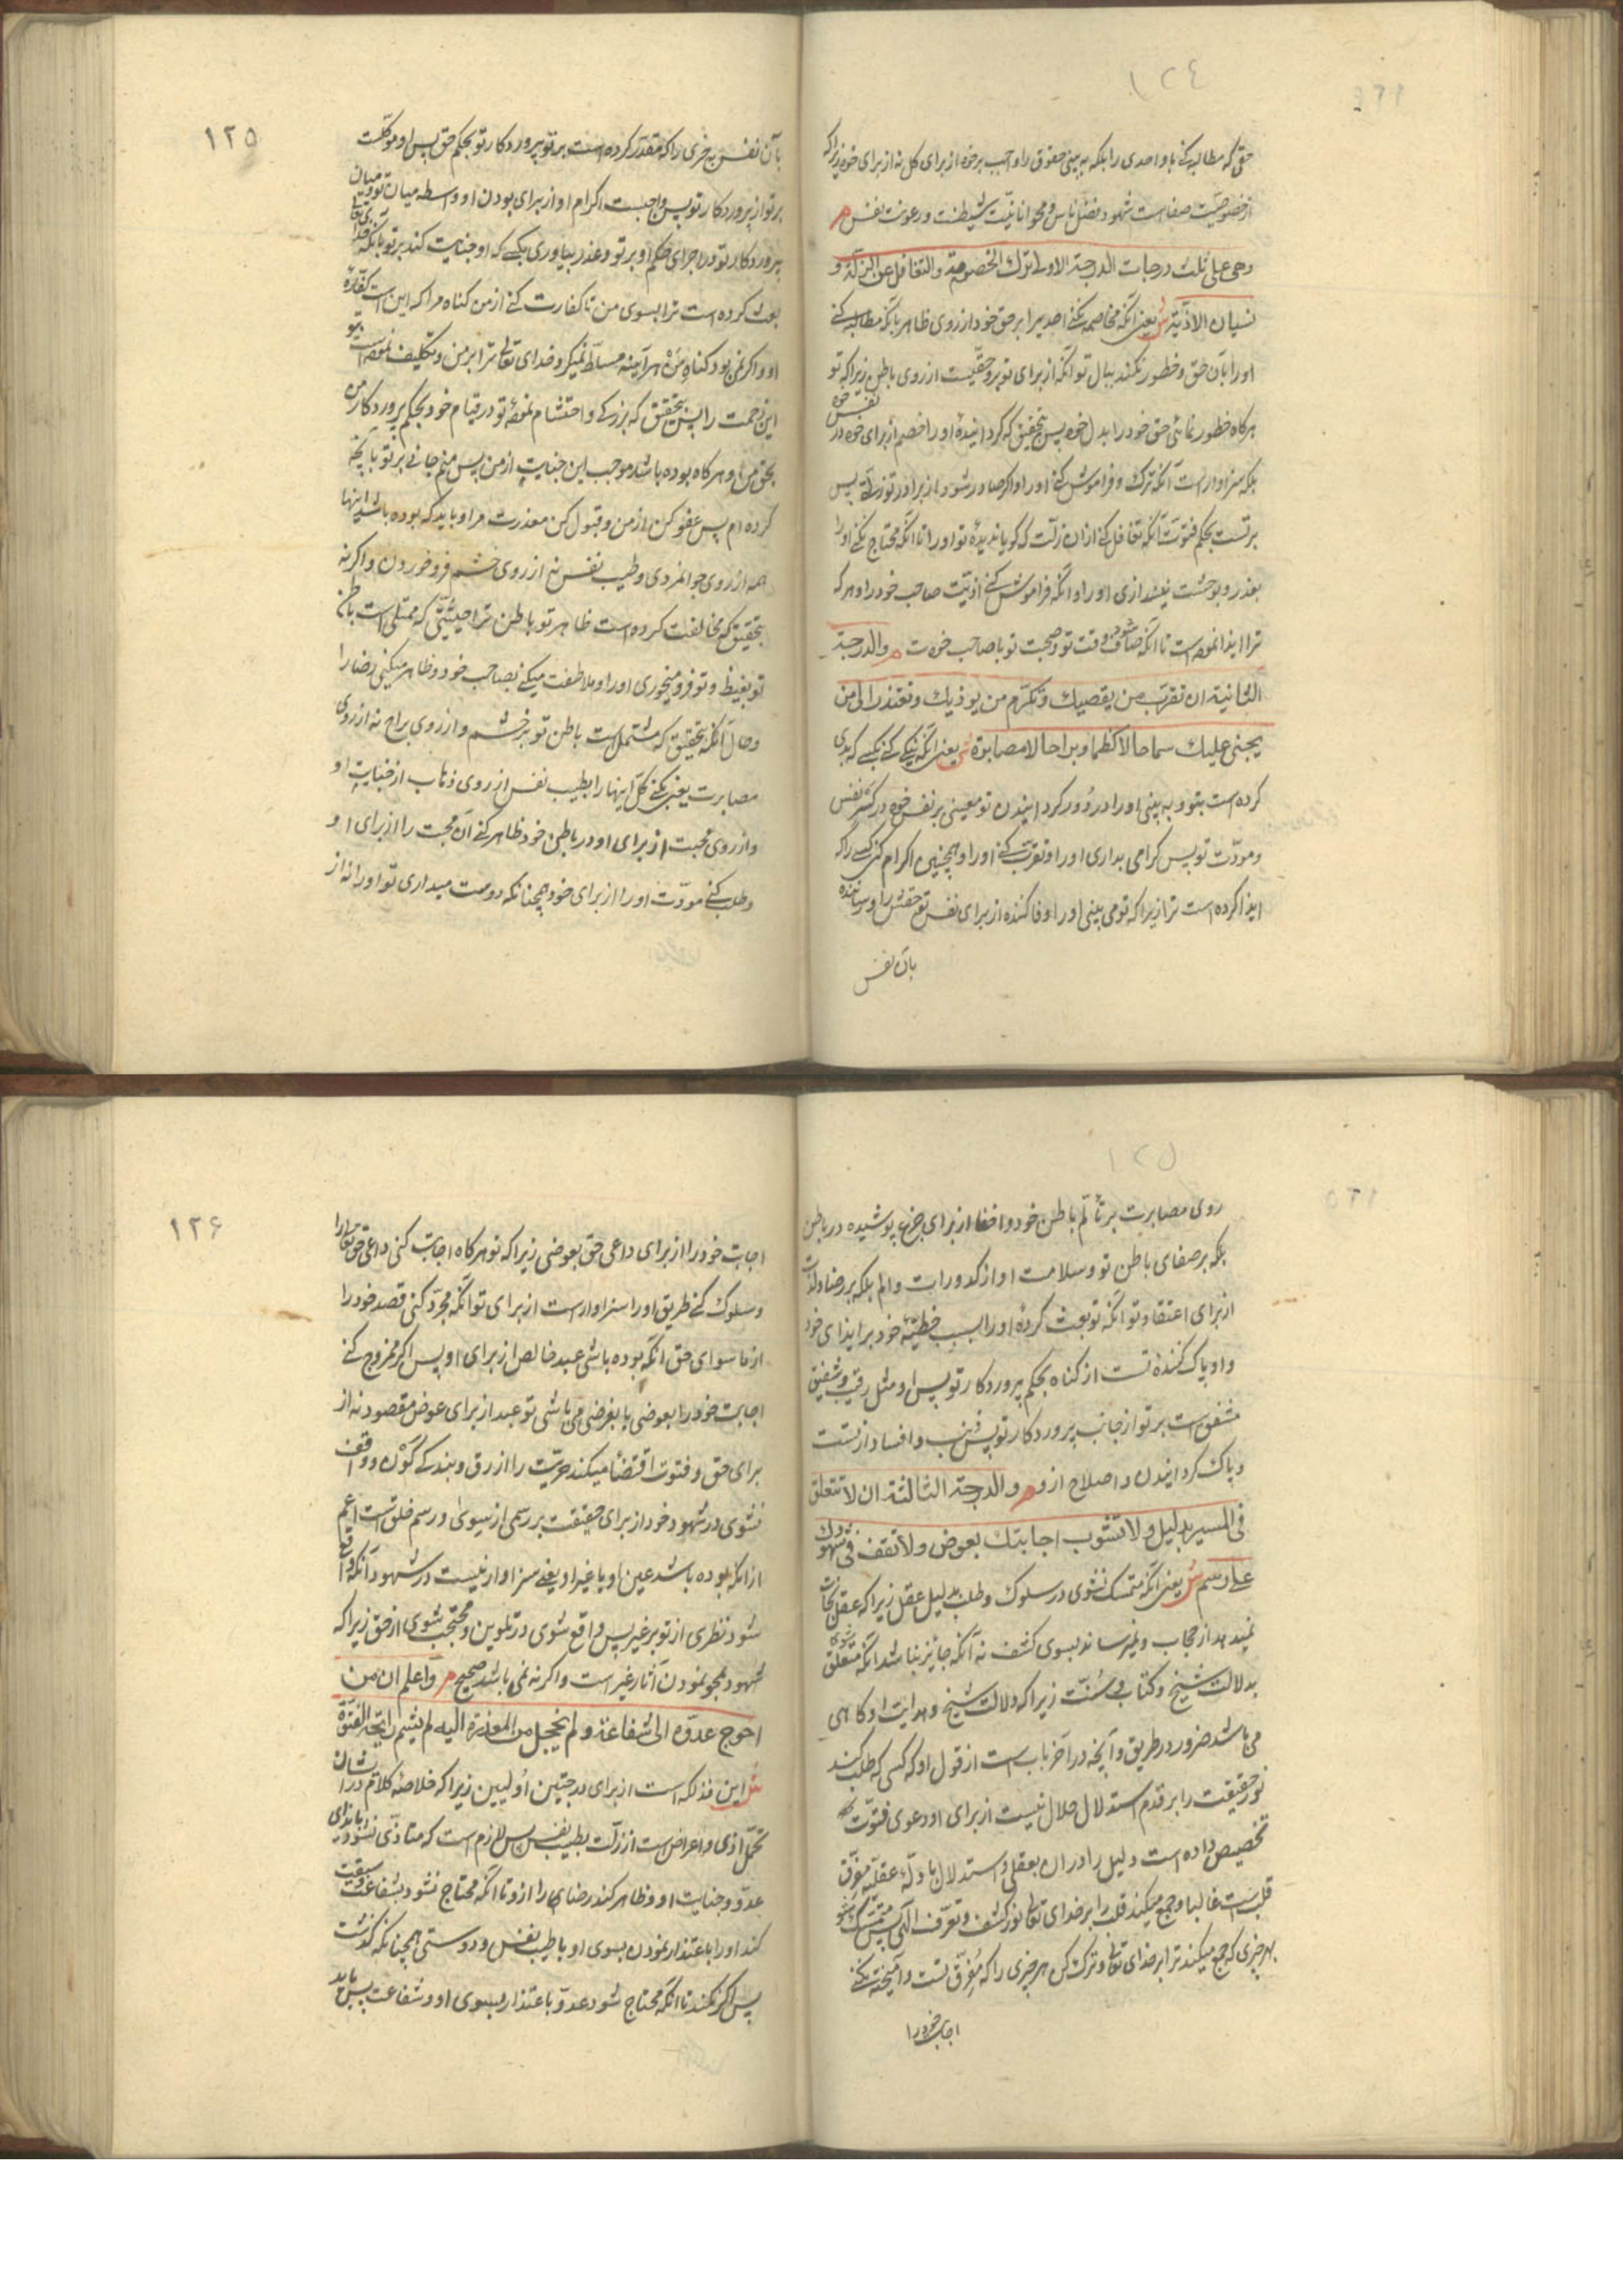 ١٢٤
حق که مطالبه کنی باو احدی را بلکه به بینی حقوق را واجب بر خود از برای کل نه از برای خود زیرا که
از خصوصیت صفاست شهود فضل ناس و محو انانیت شیطنت و رعونت نفس م
وهی علی ثلث درجات الدرجة الاولی ترك الخصومة والتغافل عن الزلة و
نسیان الاذیة ش یعنی آنکه مخاصمه نکنی احدیرا بر حق خود از روی ظاهر بآنکه مطالبه کنی
او را بآن حق و خطور نکند ببال تو آنکه از برای تو برو حقیست از روی باطن زیرا که تو
هرکاه خطور نمائی حق خود را بدل خود پس بتحقیق که کردانیدهٔ او را خصم از برای خود در نفس خود
بلکه سزاوار است آنکه ترك و فراموش کنی او را و اکر صادر شود از برادر تو زلتی پس
برتست بحکم فتوت آنکه تغافل کنی از ان زلت که کویا ندیدهٔ تو او را تا آنکه محتاج نکنی او را
بعذر و بوحشت نیندازی او را و آنکه فراموش کنی اذیت صاحب خود را و هر که
ترا ایذا نموده است تا آنکه صاف شود وقت تو و صحبت تو با صاحب خودت م والدرجة
الثانیة ان تقرب من یقصیك وتکرم من یوذیك وتعتذر الی من
یجنی علیك سماحا لا کظما وبراحا لا مصابرة ش یعنی آنکه نیکی کنی بکسی که بدی
کرده است بتو و به بینی او را در دور کردانیدن تو معینی بر نفس خود در کسر نفس
و مودت تو پس کرامی بداری او را و تقرب کنی او را و همچنین اکرام کنی کسی را که
ایذا کرده است ترا زیرا که تو می بینی او را وفا کننده از برای نفس تو حقش را و رساننده
بآن نفس
١٢٥
بآن نفس چیزی را که مقدر کرده است بر تو پروردکار تو بحکم حق پس او موکلست
بر تو از پروردکار تو پس واجبست اکرام او از برای بودن او واسطه میان تو و میان
پروردکار تو در اجرای حکم او بر تو و عذر بیاوری بکسی که او جنایت کند بر تو بآنکه خدای تعالی
بعث کرده است ترا بسوی من تا کفارت کنی از من کناه مرا که این است کفارهٔ
او و اکر نمی بود کناه من هر آینه مسلط نمیکرد خدای تعالی ترا بر من و تکلیف نموده است بتو
این زحمت را پس بتحقیق که بزرکی و احتشام نموده تو در قیام خود بحکم پروردکار من
بحق من و هرکاه بوده باشد موجب این جنایت از من پس منم جانی بر تو بآنچه
کرده ام پس عفو کن از من و قبول کن معذرت مرا و باید که بوده باشد اینها
همه از روی جوانمردی و طیب نفس نه از روی خشم فرو خوردن و اکر نه
بتحقیق که مخالفت کرده است ظاهر تو باطن ترا حیثیتی که ممتلی است باطن
تو بغیظ و تو فرو میخوری او را و ملاطفت میکنی بصاحب خود و ظاهر میکنی رضا را
و حال آنکه بتحقیق که مشتملست باطن تو بر خشم و از روی براح نه از روی
مصابرت یعنی بکنی کل اینها را بطیب نفس از روی ذهاب از جنایت او
و از روی محبت از برای او در باطن خود ظاهر کنی آن محبت را از برای او
و طلب کنی مودت او را از برای خود همچنانکه دوست میداری تو او را نه از
١٢٥
روی مصابرت بر تألم باطن خود و اخفا از برای جزع پوشیده در باطن
بلکه بر صفای باطن تو و سلامت او از کدورات و الم بلکه بر رضا و لذت
از برای اعتقاد تو آنکه تو بعث کردهٔ او را بسبب خطیئهٔ خود بر ایذای خود
و او پاک کنندهٔ تست از کناه بحکم پروردکار تو پس او مثل رقیب و شفیق
مشفق است بر تو از جانب پروردکار تو پس ذنب و افساد از تست
و پاك کردانیدن و اصلاح از و م والدرجة الثالثة ان لا تتعلق
فی المسیر بدلیل ولا تشوب اجابتك بعوض ولا تقف فی شهودك
علی رسم ش یعنی آنکه متمسک نشوی در سلوك و طلب بدلیل عقل زیرا که عقل نجات
نمیدهد از حجاب و نمیرساند بسوی کشف نه آنکه جائز نباشد آنکه متعلق شوی
بدلالت شیخ و کتاب و سنت زیرا که دلالت شیخ و هدایت او کاهی
می باشد ضرور در طریق و آنچه در آخر باب است از قول او که کسی که طلب کند
نور حقیقت را بر قدم استدلال حلال نیست از برای او دعوی فتوت که
تخصیص داده است دلیل را در ان بعقل و استدلال بادلهٔ عقلیه مفرق
قلبست غالبا و جمع میکند قلب را بر خدای تعالی نور کشف و تعرف الهی پس متمسک شو
بهر چیزی که جمع میکند ترا بر خدای تعالی و ترك کن هر چیزی را که مفرق تست و آمیخته نکنی
اجابت خود را
١٢۶
اجابت خود را از برای داعی حق بعوضی زیرا که تو هرکاه اجابت کنی داعی حق تعالی را
و سلوك کنی طریق او را سزاوار است از برای تو آنکه مجرد کنی قصد خود را
از ما سوای حق آنکه بوده باشی عبد خالص از برای او پس اکر ممزوج کنی
اجابت خود را بعوضی یا بغرضی می باشی تو عبد از برای عوض مقصود نه از
برای حق و فتوت اقتضا میکند حریت را از رق و بندکی کون و واقف
نشوی در شهود خود از برای حقیقت بر رسمی از سوی و رسم خلق است اعم
از انکه بوده باشد عین او یا غیر او یعنی سزاوار نیست در شهود آنکه واقع
شود نظری از تو بر غیر پس واقع شوی در تلوین و محتجب شوی از حق زیرا که
شهود بمحو نمودن آثار غیر است و اکر نه نمی باشد صحیح م واعلم ان من
احوج عدوه الی شفاعة ولم یخجل من المعذرة الیه لم یشم رایحة الفتوة
ش این فذلکه است از برای درجتین اولیین زیرا که خلاصهٔ کلام در آنشان
تحمل اذی و اعراض است از زلت بطیب نفس پس لازم است که متاذی نشود بایذای
عدو و جنایت او و ظاهر کند رضای را از و تا آنکه محتاج نشود بشفاعت و سبقت
کند او را باعتذار نمودن بسوی او با طیب نفس و دوستی همچنانکه کذشت
پس اکر نکند تا آنکه محتاج شود عدو باعتذار بسوی او و شفاعت پس باید